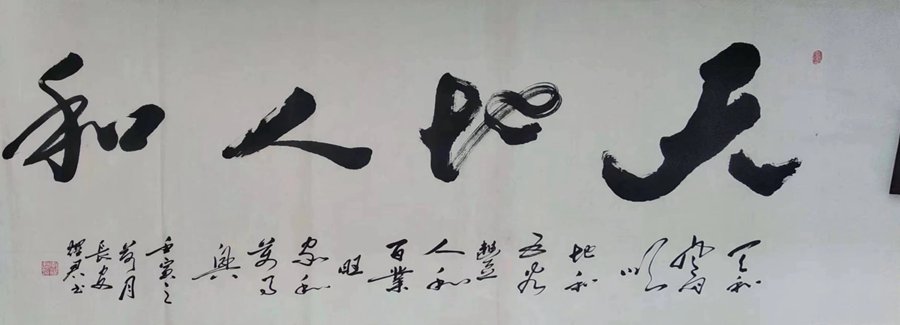 天地人和
天和
風雨
順
地和
五谷
豐
人和
百業
旺
家和
萬事
興
壬寅之
荷月
長安
耀君书